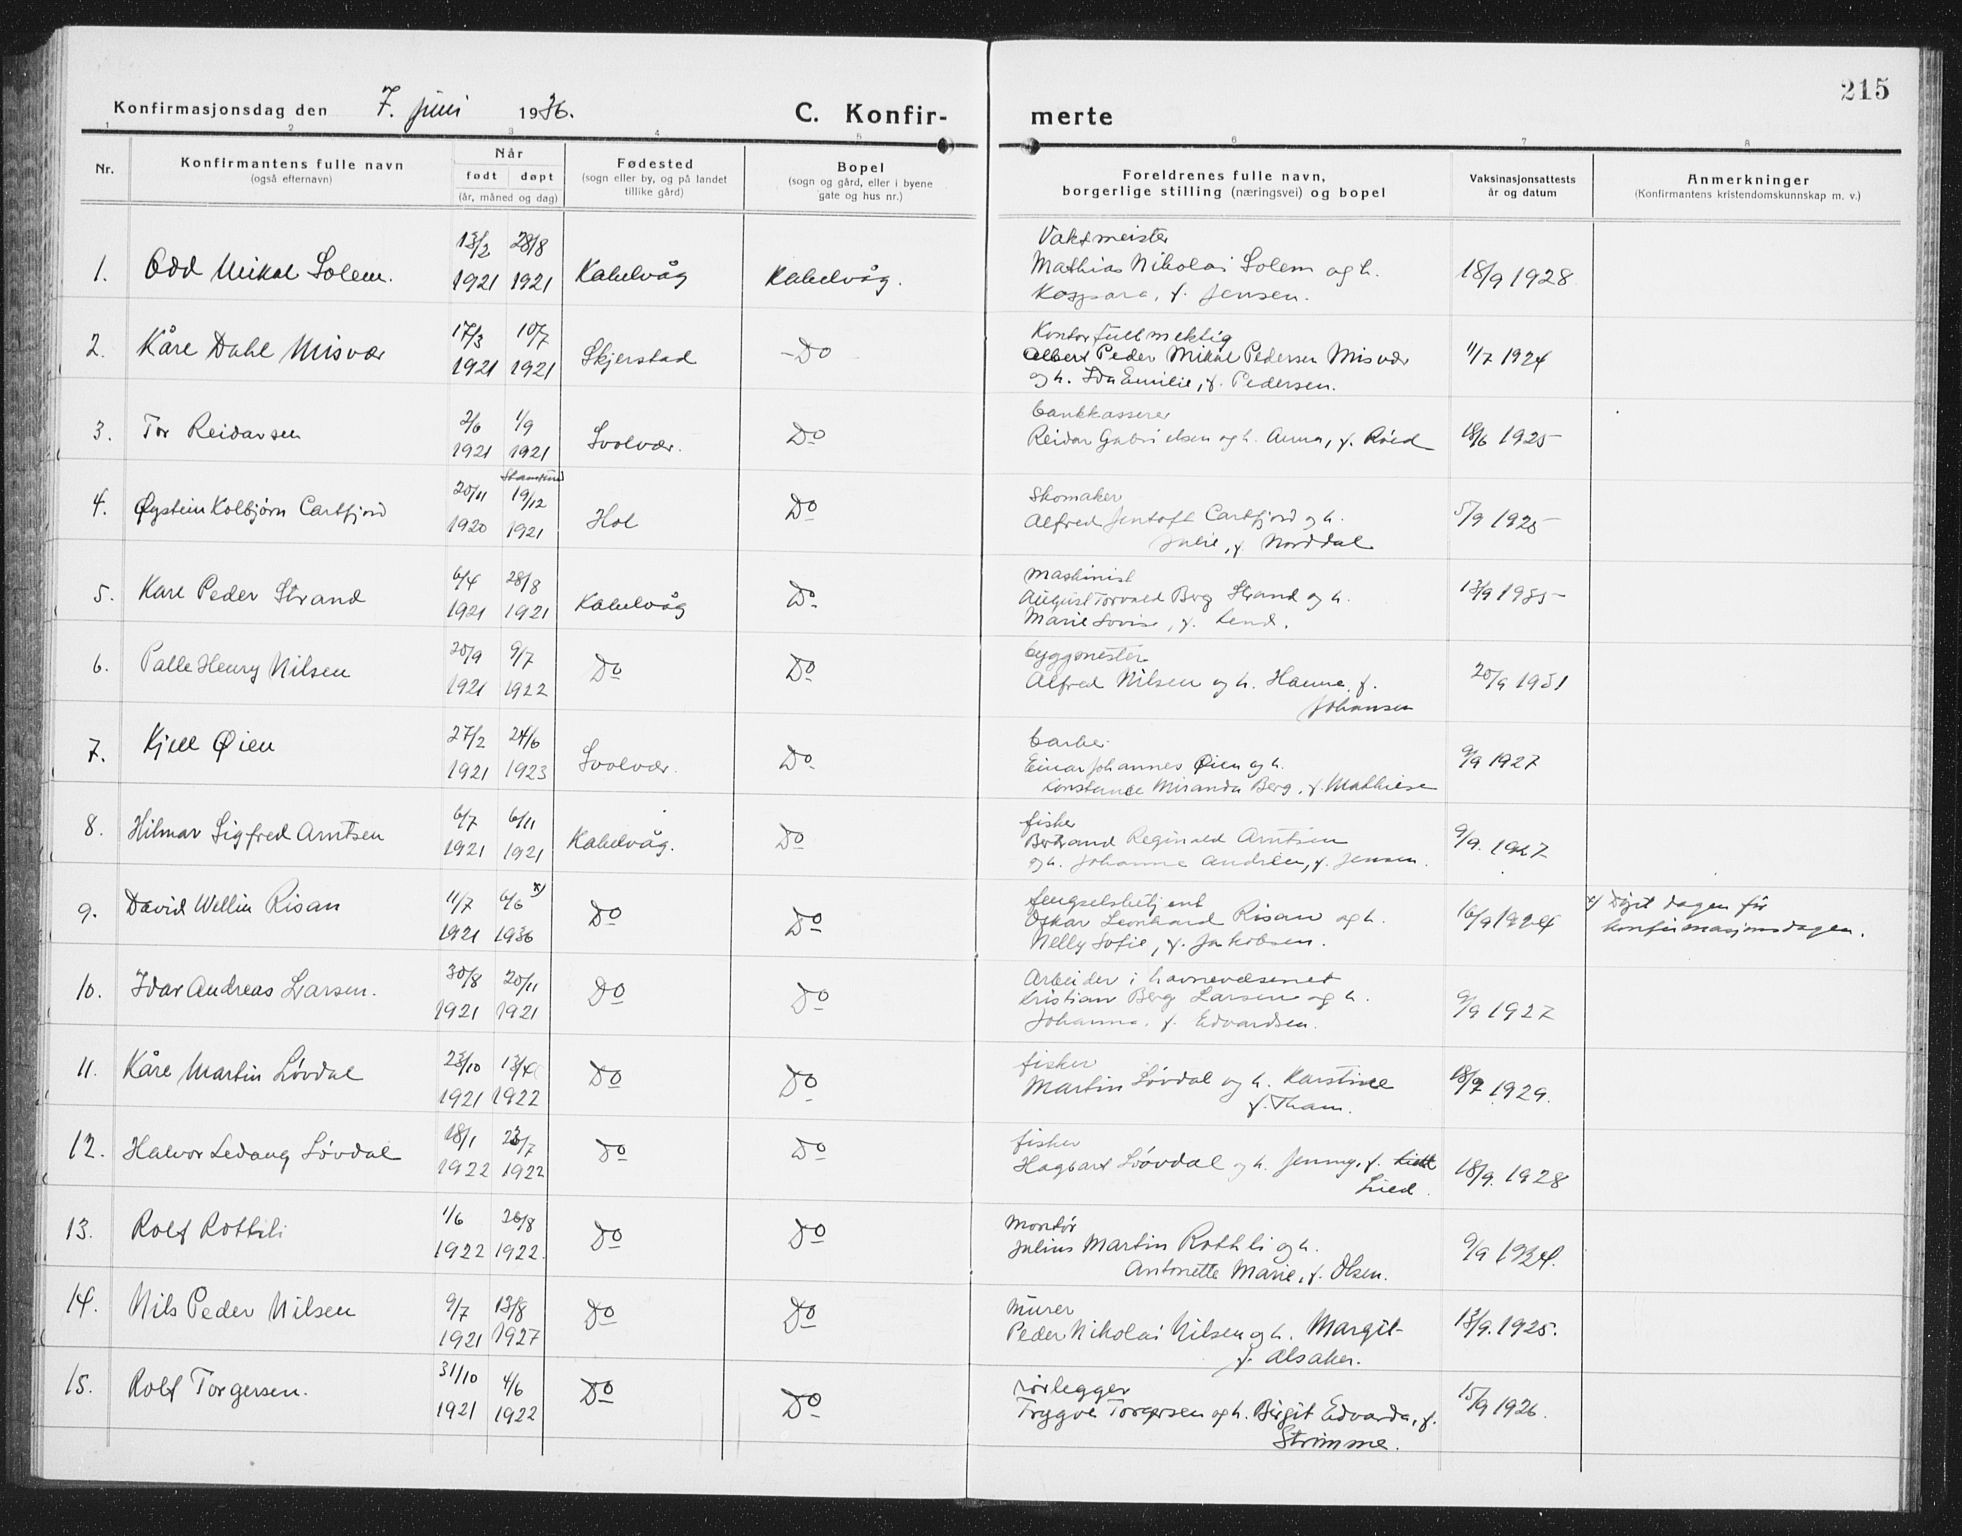 215
Konfirmasjonsdag den 7. juni 1936.
C. Konfir- merte
1 2 3 4 5 6 7 8
Nr.
Konfirmantens fulle navn
(også efternavn)
Når
født døpt
(år, måned og dag)
Fødested
(sogn eller by, og på landet
tillike gård)
Bopel
(sogn og gård, eller i byene
gate og hus nr.)
Foreldrenes fulle navn,
borgerlige stilling (næringsvei) og bopel
Vaksinasjonsattests
år og datum
Anmerkninger
(Konfirmantens kristendomskunnskap m. v.)
13/2 28/8 Vaktmeister
1. Odd Mikal Solem. Kabelvåg Kabelvåg. Mathias Nikolai Solem og h. 18/9 1928
1921 1921 Kaspara, f. Jensen.
17/3 10/7 Kontorfullmektig
2. Kåre Dahl Misvær Skjerstad -Do Albert Peder Mikal Pedersen Misvær 11/7 1924
1921 1921 og h. Ida Emilie, f. Pedersen.
2/6 1/9 bankkasserer
3. Tor Reidarsen Svolvær. Do Reidar Gabrielsen og h. Anna, f. Røed 18/6 1925
1921 1921
Stamsund
20/11 19/12 Skomaker
4. Øystein Kolbjørn Cartfjord Hol Do Alfred Jentoft Cartfjord og h. 5/9 1925
1920 1921 Julie, f. Norddal
6/4 28/8 maskinist
5. Kåre Peder Strand Kabelvåg Do August Torvald Berg Strand og h. 13/9 1935
1921 1921 Marie Lovise, f. Lind.
20/9 9/7 byggmester
6. Palle Henry Nilsen Do Do Alfred Nilsen og h. Hanna, f. 20/9 1931
1921 1922 Johansen
27/2 24/6 barber
7. Kjell Øien Svolvær. Do Einar Johannes Øien og h. 9/9 1927
1921 1923 Konstance Miranda Berg, f. Mathiese
6/7 6/11 fisker
8. Hilmar Sigfred Arntsen Kabelvåg. Do Bertrand Reginald Arntsen 9/9. 1927
1921 1921 og h. Johanna Andrea, f. Jensen.
11/7 6/6 x) fengselsbetjent
9. David Wellin Risan Do Do Oskar Leonhard Risan og h. 16/9 1924 x) Døpt dagen før
1921 1936 Nelly Sofie, f. Jakobsen. konfirmasjonsdagen.
30/8 20/11 Arbeider i havnevæsenet
10. Idar Andreas Larsen. Do Do Kristian Berg Larsen og h. 9/9 1927
1921 1921 Johanna, f. Edvardsen.
23/10 13/4 fisker
11. Kåre Martin Løvdal Do Do Martin Løvdal og h. Karstine 18/7 1929.
1921 1922 f. Tham.
18/1 23/7 fisker
12. Halvor Ledang Løvdal Do Do Hagbart Løvdal og h. Jenny, f. 18/9. 1928
1922 1922 Lied.
1/6 26/8 montør
13. Rolf Rothli Do Do Julius Martin Rothli og h. 9/9 1934.
1922 1922. Antonette Marie, f. Olsen.
9/7 13/8 murer
14. Nils Peder Nilsen Do Do Peder Nikolai Nilsen og h. Margit 13/9. 1925.
1921 1927 f. Alsaker.
31/10 4/6 rørlegger
15. Rolf Torgersen. Do Do Trygve Torgersen og h. Birgit Edvarda, f. 15/9 1926.
1921 1922 Strømme.